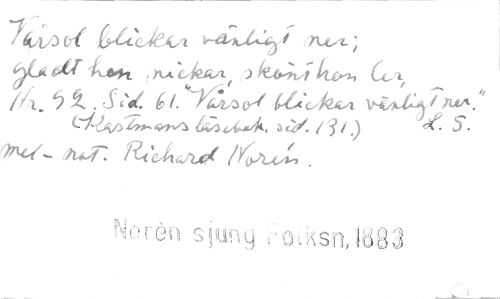 Vårsol blickar vänligt ner;
gladt hon nickar, skönt hon ler,
Nr. 52. Sid. 61. "Vårsol blickar vänligt ner."
(Kastmans läsebok. sid. 131.) L. S.
mel-not. Richard Norén.
Norén sjung Folksn, 1883